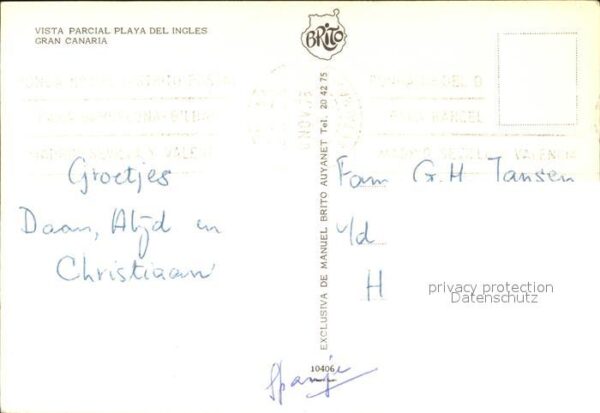 VISTA PARCIAL PLAYA DEL INGLES
GRAN CANARIA
BRITO
Groetjes
Daan, Alijd en
Christiaan
EXCLUSIVA DE MANUEL BRITO AUYANET Tel. 20 42 75
10406
Fam G.H Jansen
v/d
H
privacy protection
Datenschutz
Spanje